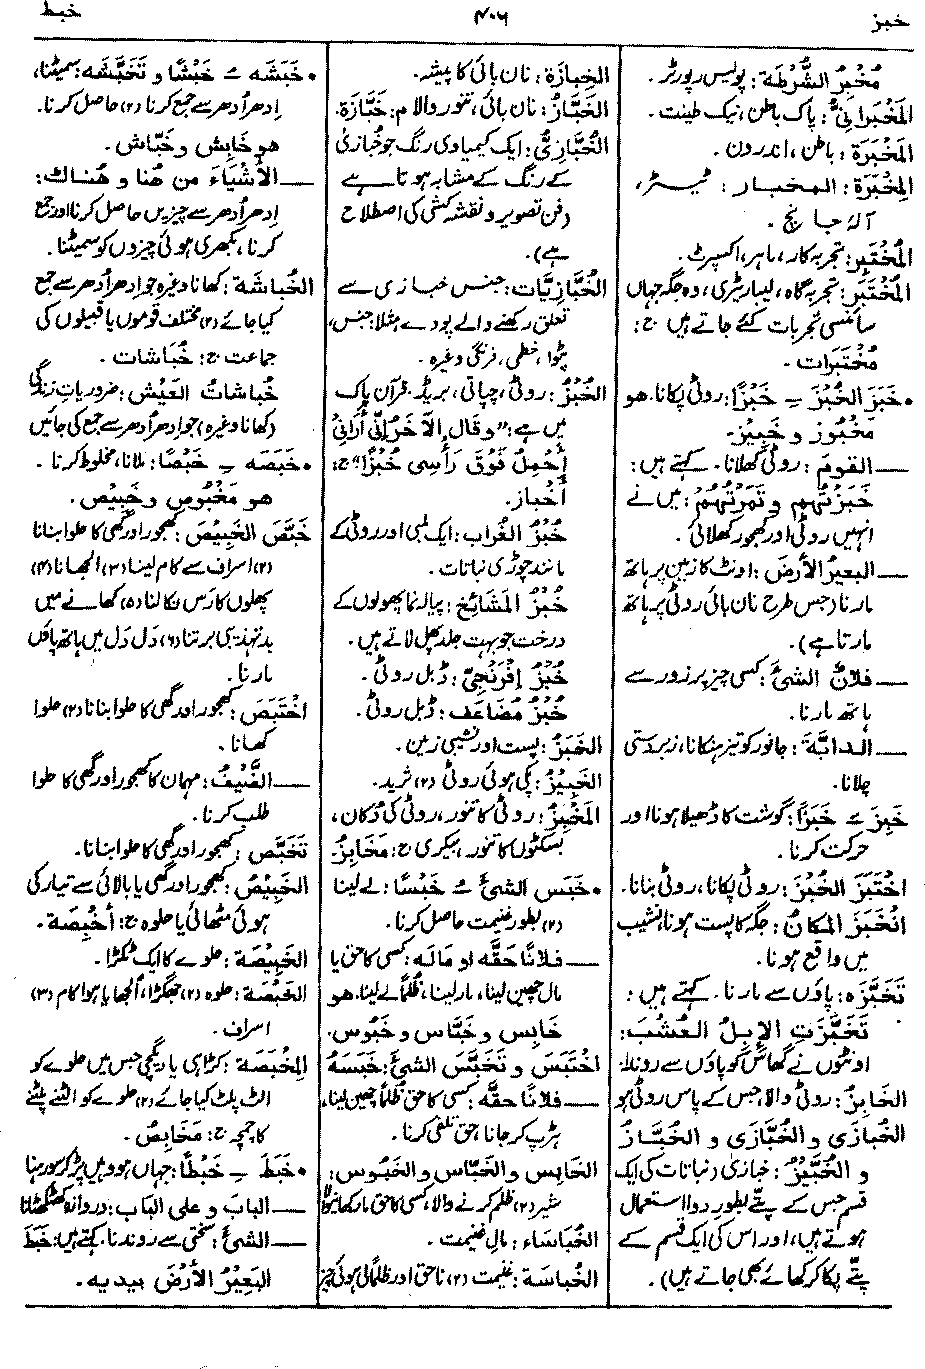 خبز
۴۰۶
خبط
مُخْبِرُ الشُّرْطَة: پولیس رپورٹر۔
المَخْبَرَانِیُّ: پاک باطن، نیک طینت۔
المَخْبَرَة: باطن، اندرون۔
المِخْبَرَة: المخبار: ٹیسٹر،
آلۂ جانچ۔
المُخْتَبِر: تجربہ کار، ماہر، اکسپرٹ۔
المُخْتَبَر: تجربہ گاہ، لیبارٹری، وہ جگہ جہاں
سائنسی تجربات کئے جاتے ہیں ج:
مُخْتَبَرات۔
• خَبَزَ الخُبْزَ ـِ خَبْزًا: روٹی پکانا۔ هو
مَخْبُوز و خَبِيز۔
ـــ القومَ: روٹی کھلانا۔ کہتے ہیں:
خَبَزْتُهُم و تَمَرْتُهُمْ: میں نے
انہیں روٹی اور کھجور کھلائی۔
ـــ البعيرُ الأرضَ: اونٹ کا زمین پر ہاتھ
مارنا (جس طرح نان بائی روٹی پر ہاتھ
مارتا ہے)۔
ـــ فلانٌ الشیَٔ: کسی چیز پر زور سے
ہاتھ مارنا۔
ـــ الدابَّةَ: جانور کو تیز ہنکانا، زبردستی
چلانا۔
خَبِزَ ـَ خَبَزًا: گوشت کا ڈھیلا ہونا اور
حرکت کرنا۔
اخْتَبَزَ الخُبْزَ: روٹی پکانا، روٹی بنانا۔
انْخَبَزَ المَكانُ: جگہ کا پست ہونا، نشیب
میں واقع ہونا۔
تَخَبَّزَہ: پاؤں سے مارنا۔ کہتے ہیں:
تَخَبَّزَتِ الإبِلُ العُشْبَ:
اونٹوں نے گھاس کو پاؤں سے روندا۔
الخَابِزُ: روٹی والا، جس کے پاس روٹی ہو
الخُبَازَی و الخُبَّازَی و الخُبَّازُ
و الخُبَّيْزُ: خبازی (نباتات کی ایک
قسم جس کے پتے بطور دوا استعمال
ہوتے ہیں، اور اس کی ایک قسم کے
پتے پکا کر کھائے بھی جاتے ہیں)۔
الخِبَازَة: نان بائی کا پیشہ۔
الخَبَّازُ: نان بائی، تنور والا م: خَبَّازَة۔
الخُبَّازِیُّ: ایک کیمیاوی رنگ جو خبازی
کے رنگ کے مشابہ ہوتا ہے
(فن تصویر و نقشہ کشی کی اصطلاح
ہے)۔
الخُبَّازِيَّات: جنس خبازی سے
تعلق رکھنے والے پودے مثلا: جنس،
پٹوا، خطمی، فرنگی وغیرہ۔
الخُبْزُ: روٹی، چپاتی، بریڈ۔ قرآن پاک
میں ہے: "وقال الآخَر إنّی أرانِیْ
أحْمِلُ فَوْقَ رَأسِی خُبْزًا" ج:
أخْباز۔
خُبْزُ الغُرَاب: ایک لمبی اور روٹی کے
مانند چوڑی نباتات۔
خُبْزُ المَشَائِخ: پیالہ نما پھولوں کے
درخت جو بہت جلد پھل لاتے ہیں۔
خُبْزٌ إفْرَنْجِیٌّ: ڈبل روٹی۔
خُبْزٌ مُضَاعَف: ڈبل روٹی۔
الخَبَزُ: پست اور نشیبی زمین۔
الخَبِيْزُ: پکی ہوئی روٹی (۲) ثرید۔
المَخْبِزُ: روٹی کا تنور، روٹی کی دُکان،
بسکٹوں کا تنور، بیکری ج: مَخَابِزُ
• خَبَسَ الشیَٔ ـُ خَبْسًا: لے لینا
(۲) بطور غنیمت حاصل کرنا۔
ـــ فلانًا حَقَّه او مَالَه: کسی کا حق یا
مال چھین لینا، مار لینا، ظلماً لے لینا۔ هو
خَابِس و خَبَّاس و خَبُوس۔
اخْتَبَسَ و تَخَبَّسَ الشیَٔ: خَبَسَهُ
ـــ فلانًا حقَّه: کسی کا حق ظلماً چھین لینا،
ہڑپ کر جانا، حق تلفی کرنا۔
الخَابِس والخَبَّاس والخَبُوس:
شیر (۲) ظلم کرنے والا، کسی کا حق مار کھانے والا
الخُبَاسَاء: مالِ غنیمت۔
الخُبَاسَة: غنیمت (۲) ناحق اور ظلماً لی ہوئی چیز
• خَبَشَه ـُ خَبْشًا و تَخَبَّشَه: سمیٹنا،
اِدھر اُدھر سے جمع کرنا (۲) حاصل کرنا۔
هو خَابِش و خَبّاش۔
ـــ الأشْيَاءَ من هُنا و هُناك:
اِدھر اُدھر سے چیزیں حاصل کرنا اور جمع
کرنا، بکھری ہوئی چیزوں کو سمیٹنا۔
الخُبَاشَة: کھانا وغیرہ جو اِدھر اُدھر سے جمع
کیا جائے (۲) مختلف قوموں یا قبیلوں کی
جماعت ج: خُبَاشات۔
خُبَاشاتُ العَيْش: ضروریاتِ زندگی
(کھانا وغیرہ) جو اِدھر اُدھر سے جمع کی جائیں
• خَبَصَه ـِ خَبْصًا: ملانا، مخلوط کرنا۔
هو مَخْبُوص و خَبِيص۔
خَبَّصَ الخَبِيْصَ: کھجور اور گھی کا حلوا بنانا
(۲) اسراف سے کام لینا (۳) الجھانا (۴)
پھلوں کا رَس نکالنا (۵) کھانے میں
بدتہذیبی برتنا (۶) دَل دَل میں ہاتھ پاؤں
مارنا۔
اخْتَبَصَ: کھجور اور گھی کا حلوا بنانا (۲) حلوا
کھانا۔
ـــ الضَّيْفُ: مہمان کا کھجور اور گھی کا حلوا
طلب کرنا۔
تَخَبَّصَ: کھجور اور گھی کا حلوا بنانا۔
الخَبِيْصُ: کھجور اور گھی یا بالائی سے تیار کی
ہوئی مٹھائی یا حلوہ ج: أخْبِصَة۔
الخَبِيْصَة: حلوے کا ایک ٹکڑا۔
الخَبْصَة: حلوہ (۲) جھگڑا، اُلجھا ہوا کام (۳)
اسراف۔
المِخْبَصَة: کڑاہی یا دیگچی جس میں حلوے کو
الٹ پلٹ کیا جائے (۲) حلوے کو الٹنے پلٹنے
کا چمچہ ج: مَخَابِصُ۔
• خَبَطَ ـِ خَبْطًا: جہاں ہو وہیں پڑ کر سو رہنا
ـــ البابَ و علی الباب: دروازہ کھٹکھٹانا
ـــ الشیَٔ: سختی سے روندنا۔ کہتے ہیں: خَبَطَ
البَعِيْرُ الأرْضَ بيديه۔